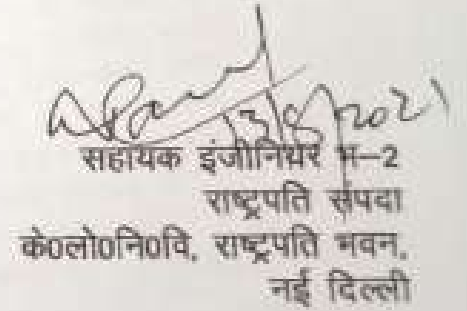 13/8/2021
सहायक इंजीनियर भ–2
राष्ट्रपति संपदा
के0लो0नि0वि, राष्ट्रपति भवन,
नई दिल्ली